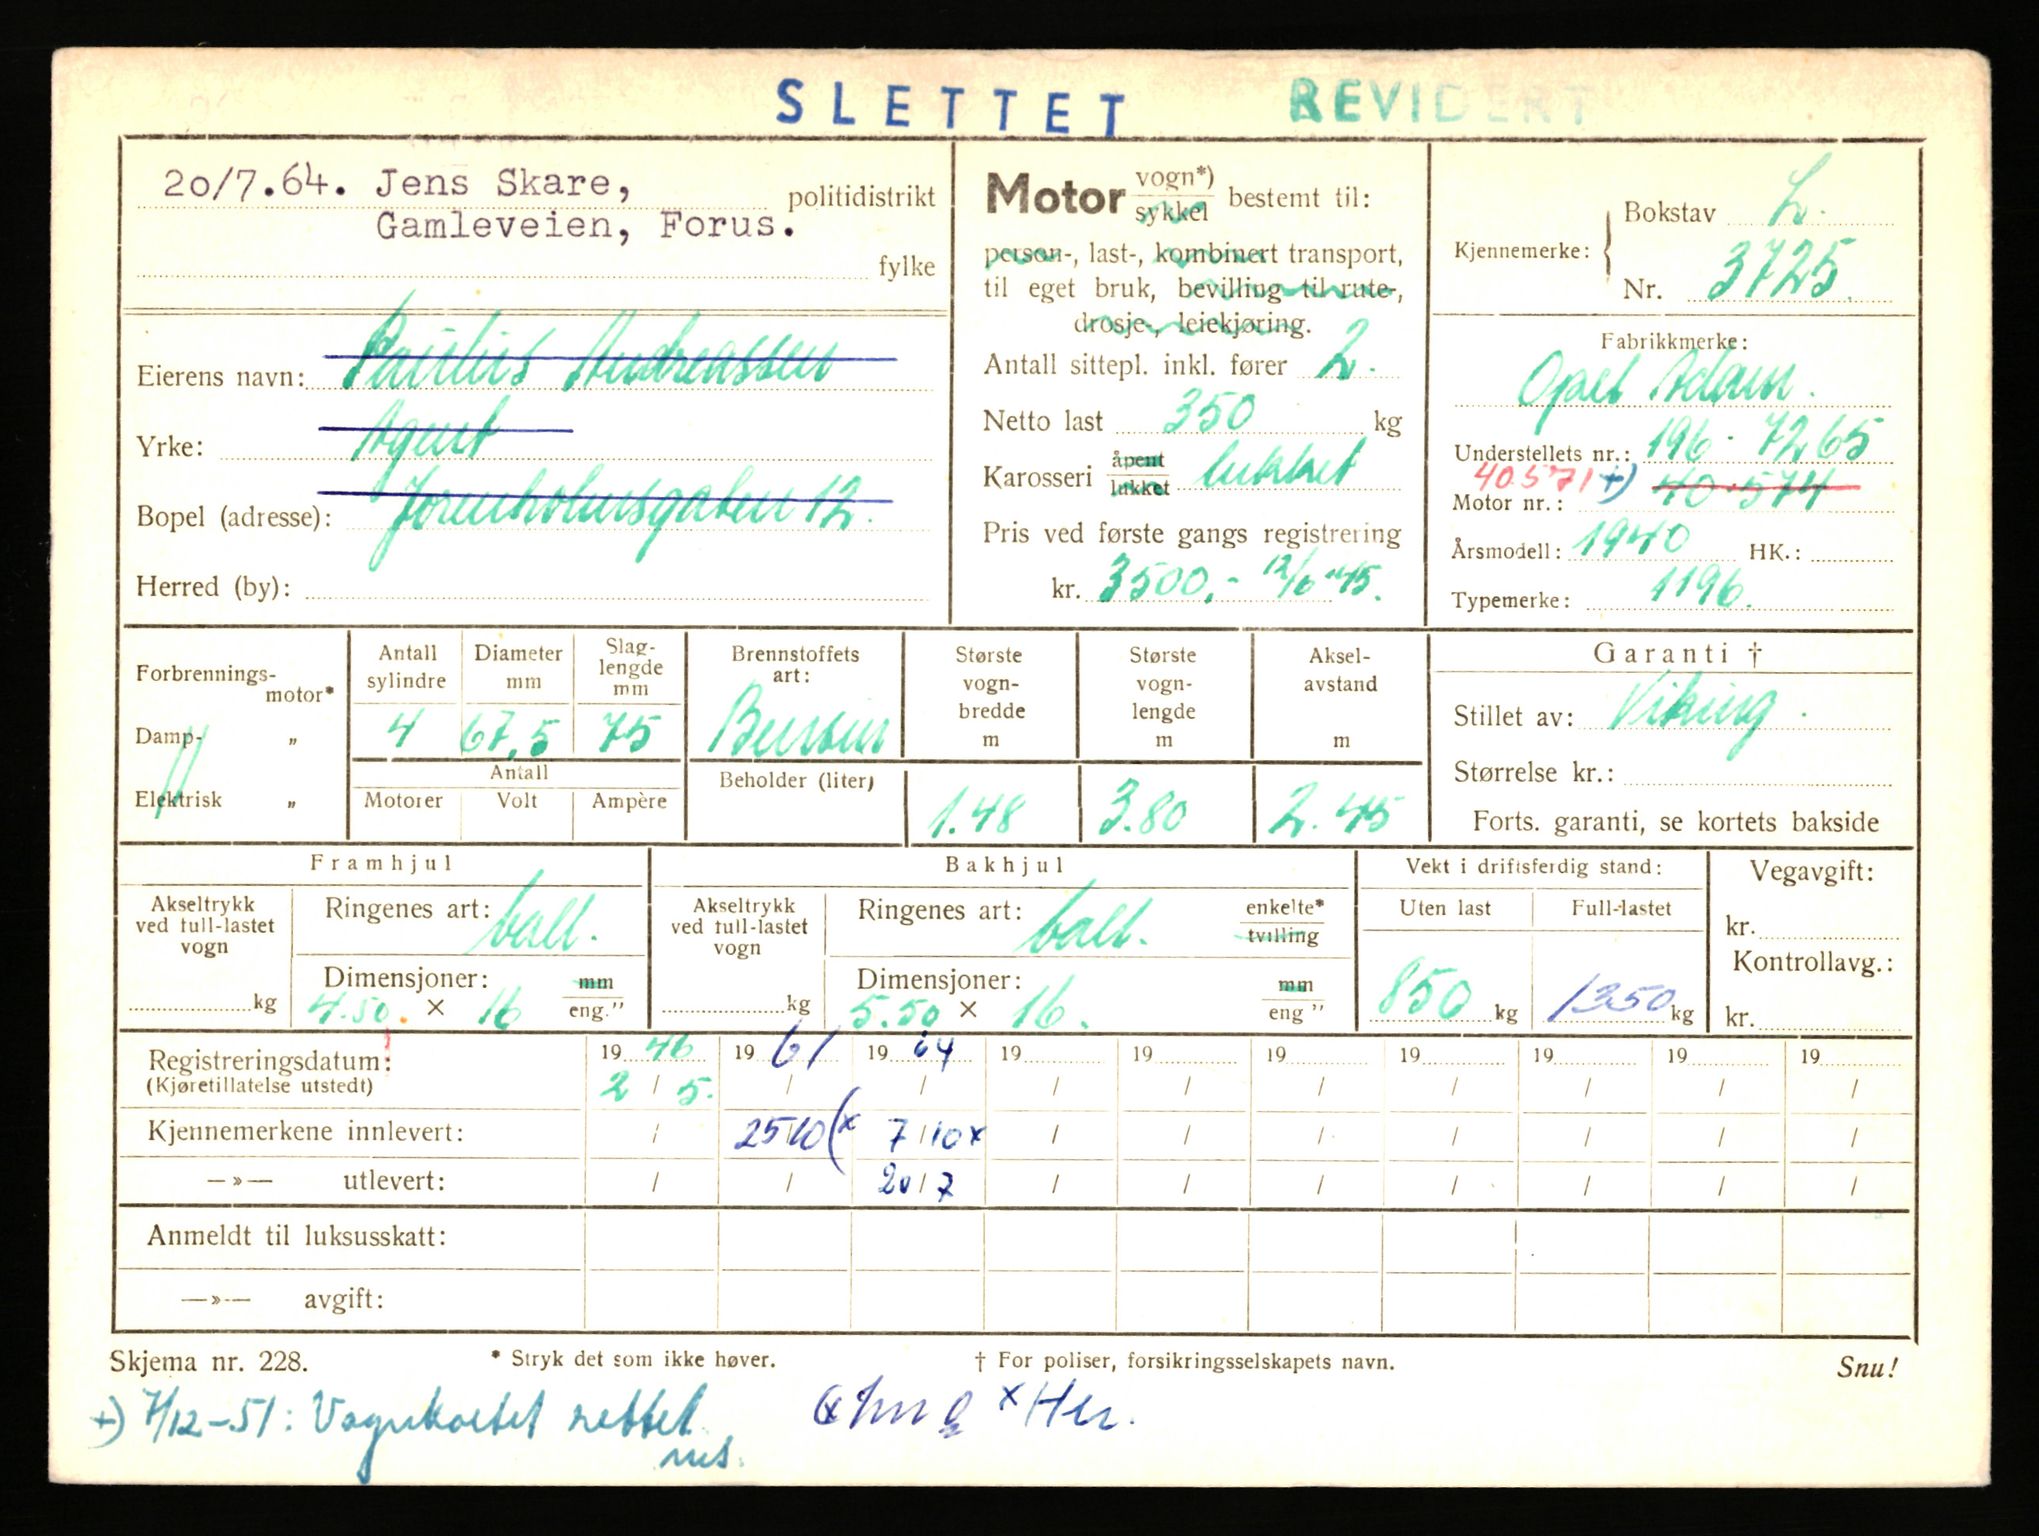 SLETTET REVIDERT
20/7.64. Jens Skare, politidistrikt
Gamleveien, Forus.
fylke
Eierens navn: Paulus Andreassen
Yrke: Agent
Bopel (adresse): Jorenholmsgaten 12.
Herred (by):
Motor vogn*) sykkel bestemt til:
person-, last-, kombinert transport,
til eget bruk, bevilling til rute-,
drosje-, leiekjøring.
Antall sittepl. inkl. fører 2.
Netto last 350 kg
Karosseri åpent lukket lukket
Pris ved første gangs registrering
kr. 3500.- 12/6-45.
Kjennemerke: Bokstav L.
Nr. 3725.
Fabrikkmerke:
Opel Adam.
Understellets nr.: 196-7265
40571 +) 40-574
Motor nr.:
Årsmodell: 1940 HK.:
Typemerke: 1196.
Forbrennings-motor*
Damp- „
Elektrisk „
Antall sylindre
Diameter mm
Slag-lengde mm
4 67,5 75
Antall
Motorer Volt Ampère
Brennstoffets art:
Bensin
Beholder (liter)
Største vogn-bredde m
1.48
Største vogn-lengde m
3.80
Aksel-avstand m
2.45
Garanti †
Stillet av: Viking.
Størrelse kr.:
Forts. garanti, se kortets bakside
Framhjul
Akseltrykk ved full-lastet vogn
kg
Ringenes art: ball.
Dimensjoner: mm
4.50. × 16 eng.”
Bakhjul
Akseltrykk ved full-lastet vogn
kg
Ringenes art: ball. enkelte* tvilling
Dimensjoner: mm
5.50 × 16. eng ”
Vekt i driftsferdig stand:
Uten last Full-lastet
850 kg 1350 kg
Vegavgift:
kr.
Kontrollavg.:
kr.
Registreringsdatum: 19 46 19 61 19 64 19 19 19 19 19 19 19
(Kjøretillatelse utstedt) 2 / 5. / / / / / / / / /
Kjennemerkene innlevert: / 25/10 (x 7/10x / / / / / / /
—»— utlevert: / / 20/7 / / / / / / /
Anmeldt til luksusskatt:
—»— avgift:
Skjema nr. 228. * Stryk det som ikke høver. † For poliser, forsikringsselskapets navn. Snu!
+) 7/12-51: Vognkortet rettet